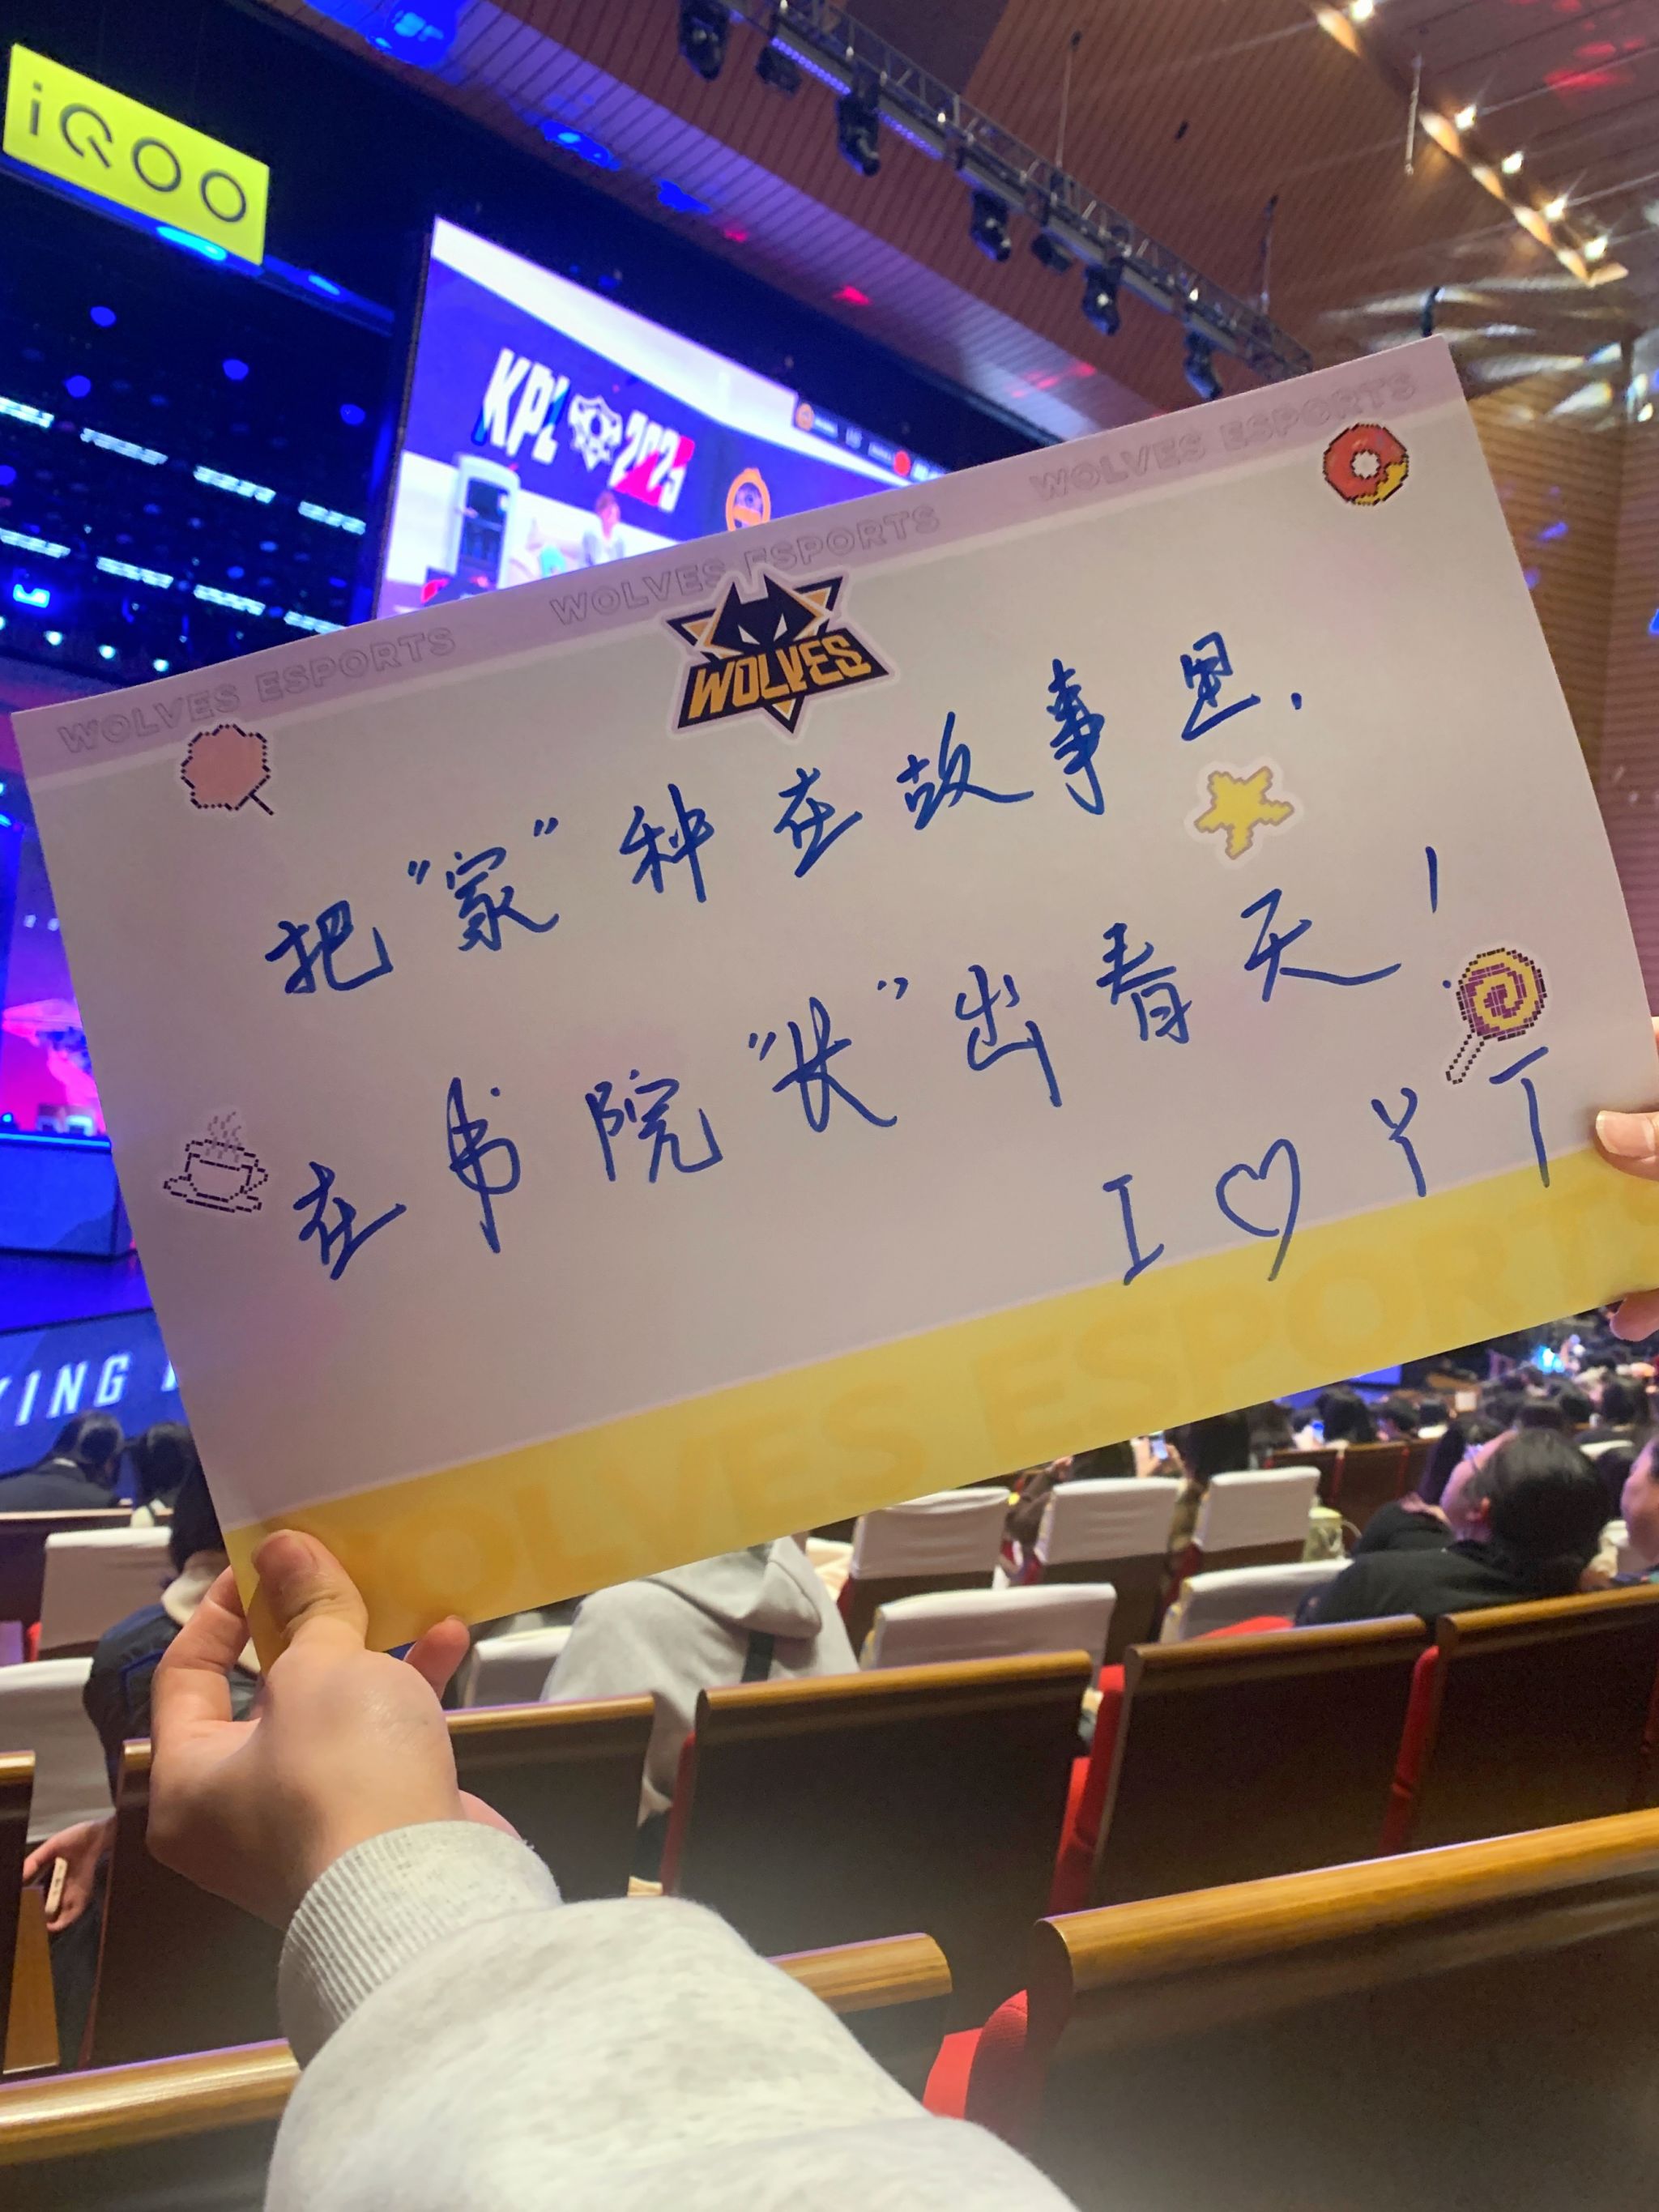 iQOO
KPL 2025
WOLVES ESPORTS WOLVES ESPORTS WOLVES ESPORTS
WOLVES
把“家”种在故事里.
在书院“长”出春天!
I ♡ Y T
WOLVES ESPORTS
KING